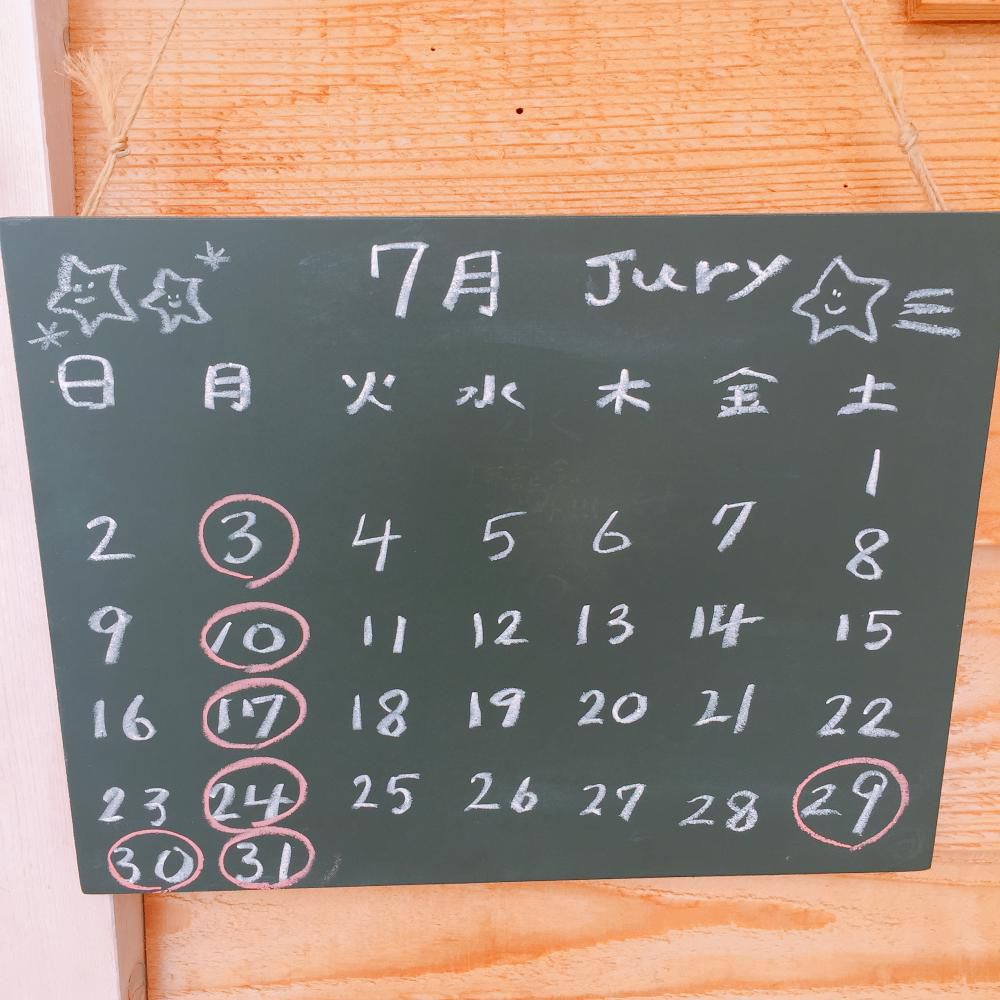 7月 Jury
日 月 火 水 木 金 土
1
2 3 4 5 6 7 8
9 10 11 12 13 14 15
16 17 18 19 20 21 22
23 24 25 26 27 28 29
30 31